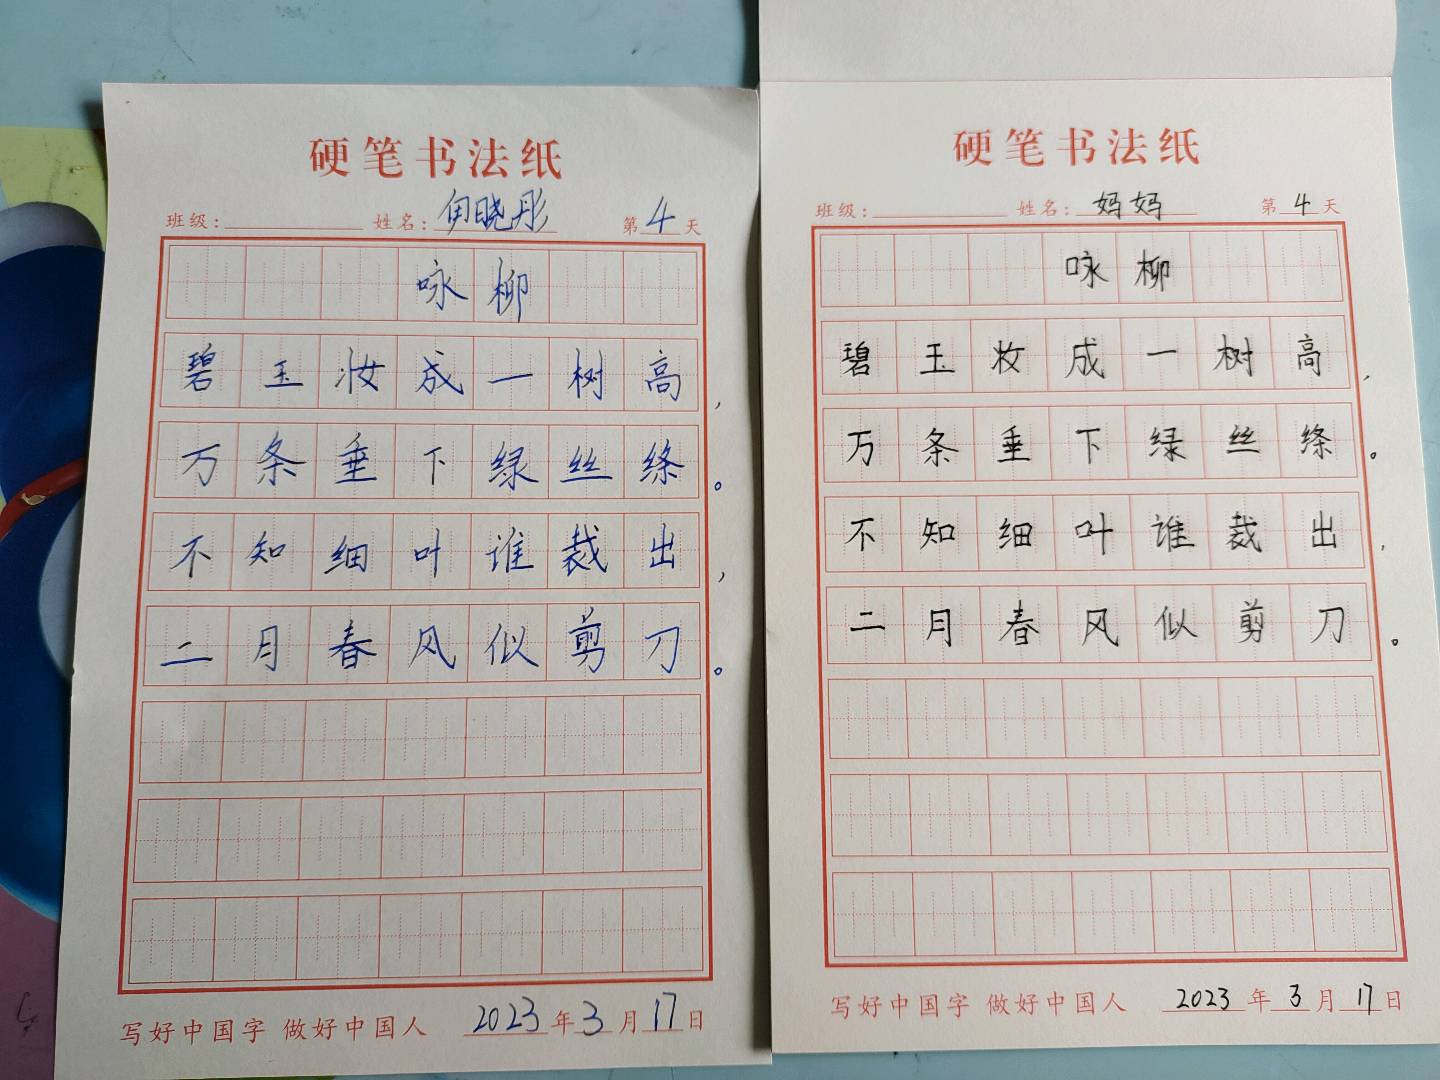 硬笔书法纸
班级: 姓名: 晓彤 第4天
咏柳
碧玉妆成一树高,
万条垂下绿丝绦。
不知细叶谁裁出,
二月春风似剪刀。
写好中国字 做好中国人 2023年3月17日
硬笔书法纸
班级: 姓名: 妈妈 第4天
咏柳
碧玉妆成一树高,
万条垂下绿丝绦。
不知细叶谁裁出,
二月春风似剪刀。
写好中国字 做好中国人 2023年3月17日